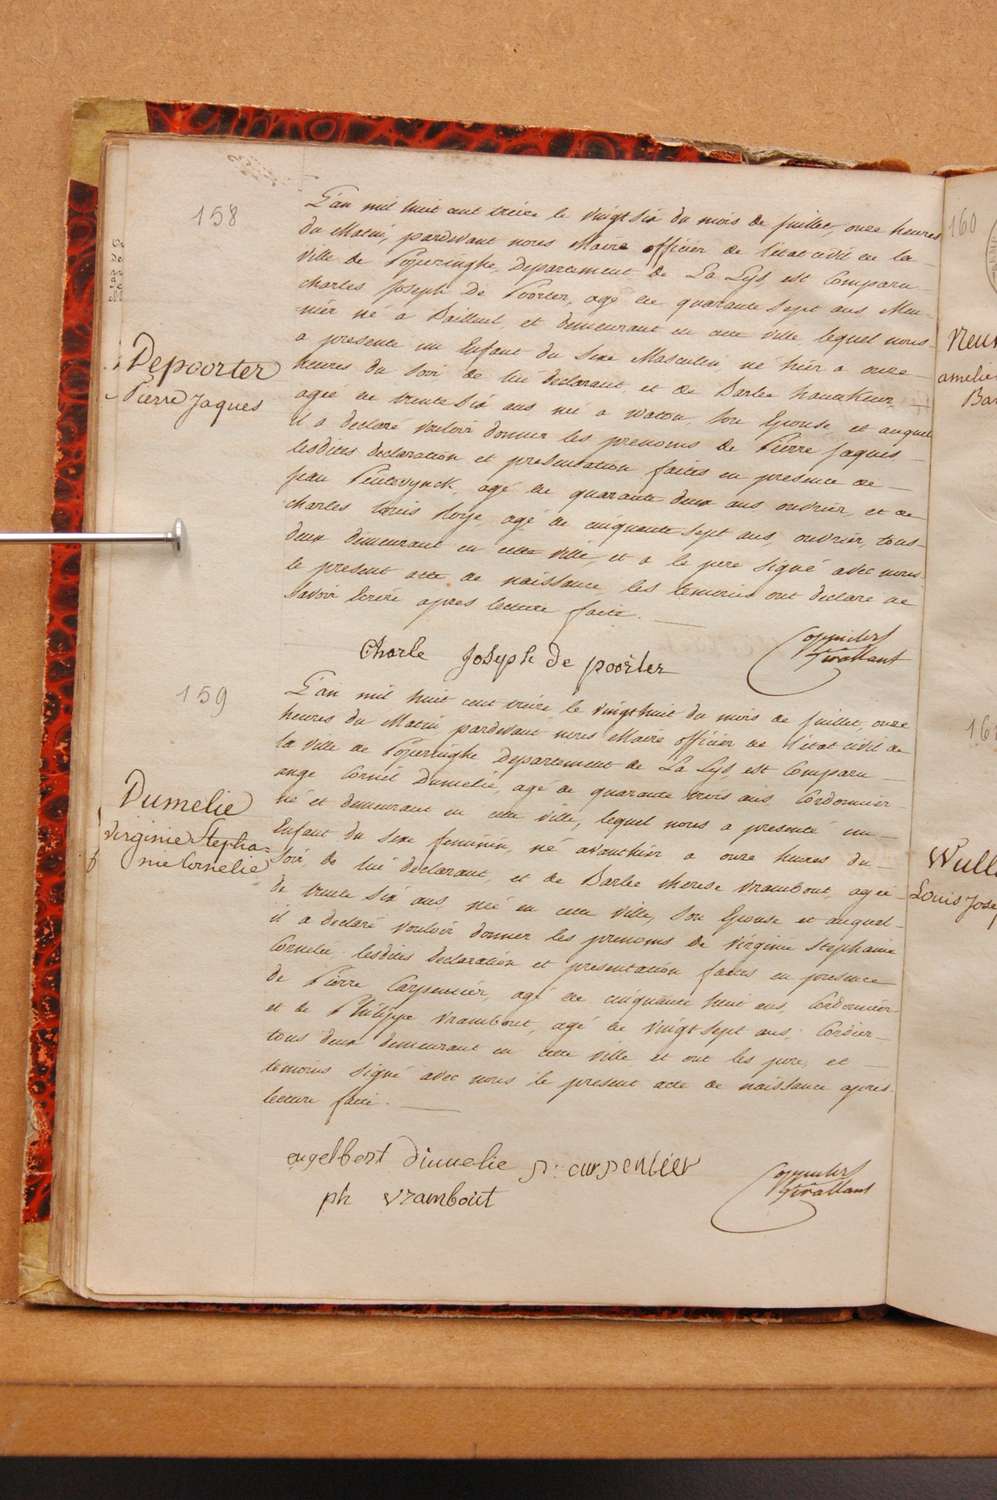 158
L'an mil huit cent treize le vingt six du mois de juillet, onze heures
du Matin, pardevant nous Maire officier de l'etat civil de la
ville de Poperinghe, Departement de La Lys, est Comparu
charles Joseph De Poorter, agé de quarante sept ans Meu-
nier né a Bailleul, et demeurant en cette ville, lequel nous
a presenté un Enfant du Sexe Masculin, né hier a onze
heures du Soir de lui declarant, et de Barbe
Depoorter
Pierre Jaques
agée de trente Six ans née a watou, Son Epouse, et auquel
il a declaré vouloir donner les prenoms de Pierre Jaques
lesdites declaration et presentation faites en presence de
jean agé de quarante deux ans ouvrier, et de
charles Louis agé de cinquante sept ans, ouvrier, tous
deux demeurant en cette ville, et a le pere signé avec nous
le present acte de naissance, les temoins ont declaré ne
Savoir Ecrire apres lecture faite.
Charle Joseph de poorter
159
L'an mil huit cent treize le vingt huit du mois de juillet, onze
heures du Matin, pardevant nous Maire officier de l'etat civil de
la ville de Poperinghe Departement de La Lys, est Comparu
ange Corneil Dumelie, agé de quarante trois ans Cordonnier
né et demeurant en cette ville, lequel nous a presenté un
Dumelie
Virginie Stepha=
nie Cornelie
Enfant du Sexe feminin, né avanthier a onze heures du
Soir, de lui declarant, et de Barbe therese vrambout, agée
de trente Six ans, née en cette ville, Son Epouse et auquel
il a declaré vouloir donner les prenoms de virginie Stephanie
Cornelie lesdites declaration et presentation faites en presence
de Pierre Carpentier, agé de cinquante huit ans, Cordonnier
et de Philippe vrambout, agé de vingt sept ans, Cordier
tous deux demeurant en cette ville et ont les pere, et
temoins signé avec nous le present acte de naissance apres
lecture faite.
engelbert dumelie p: carpentier
ph vrambout
160
amelie
Louis Jose